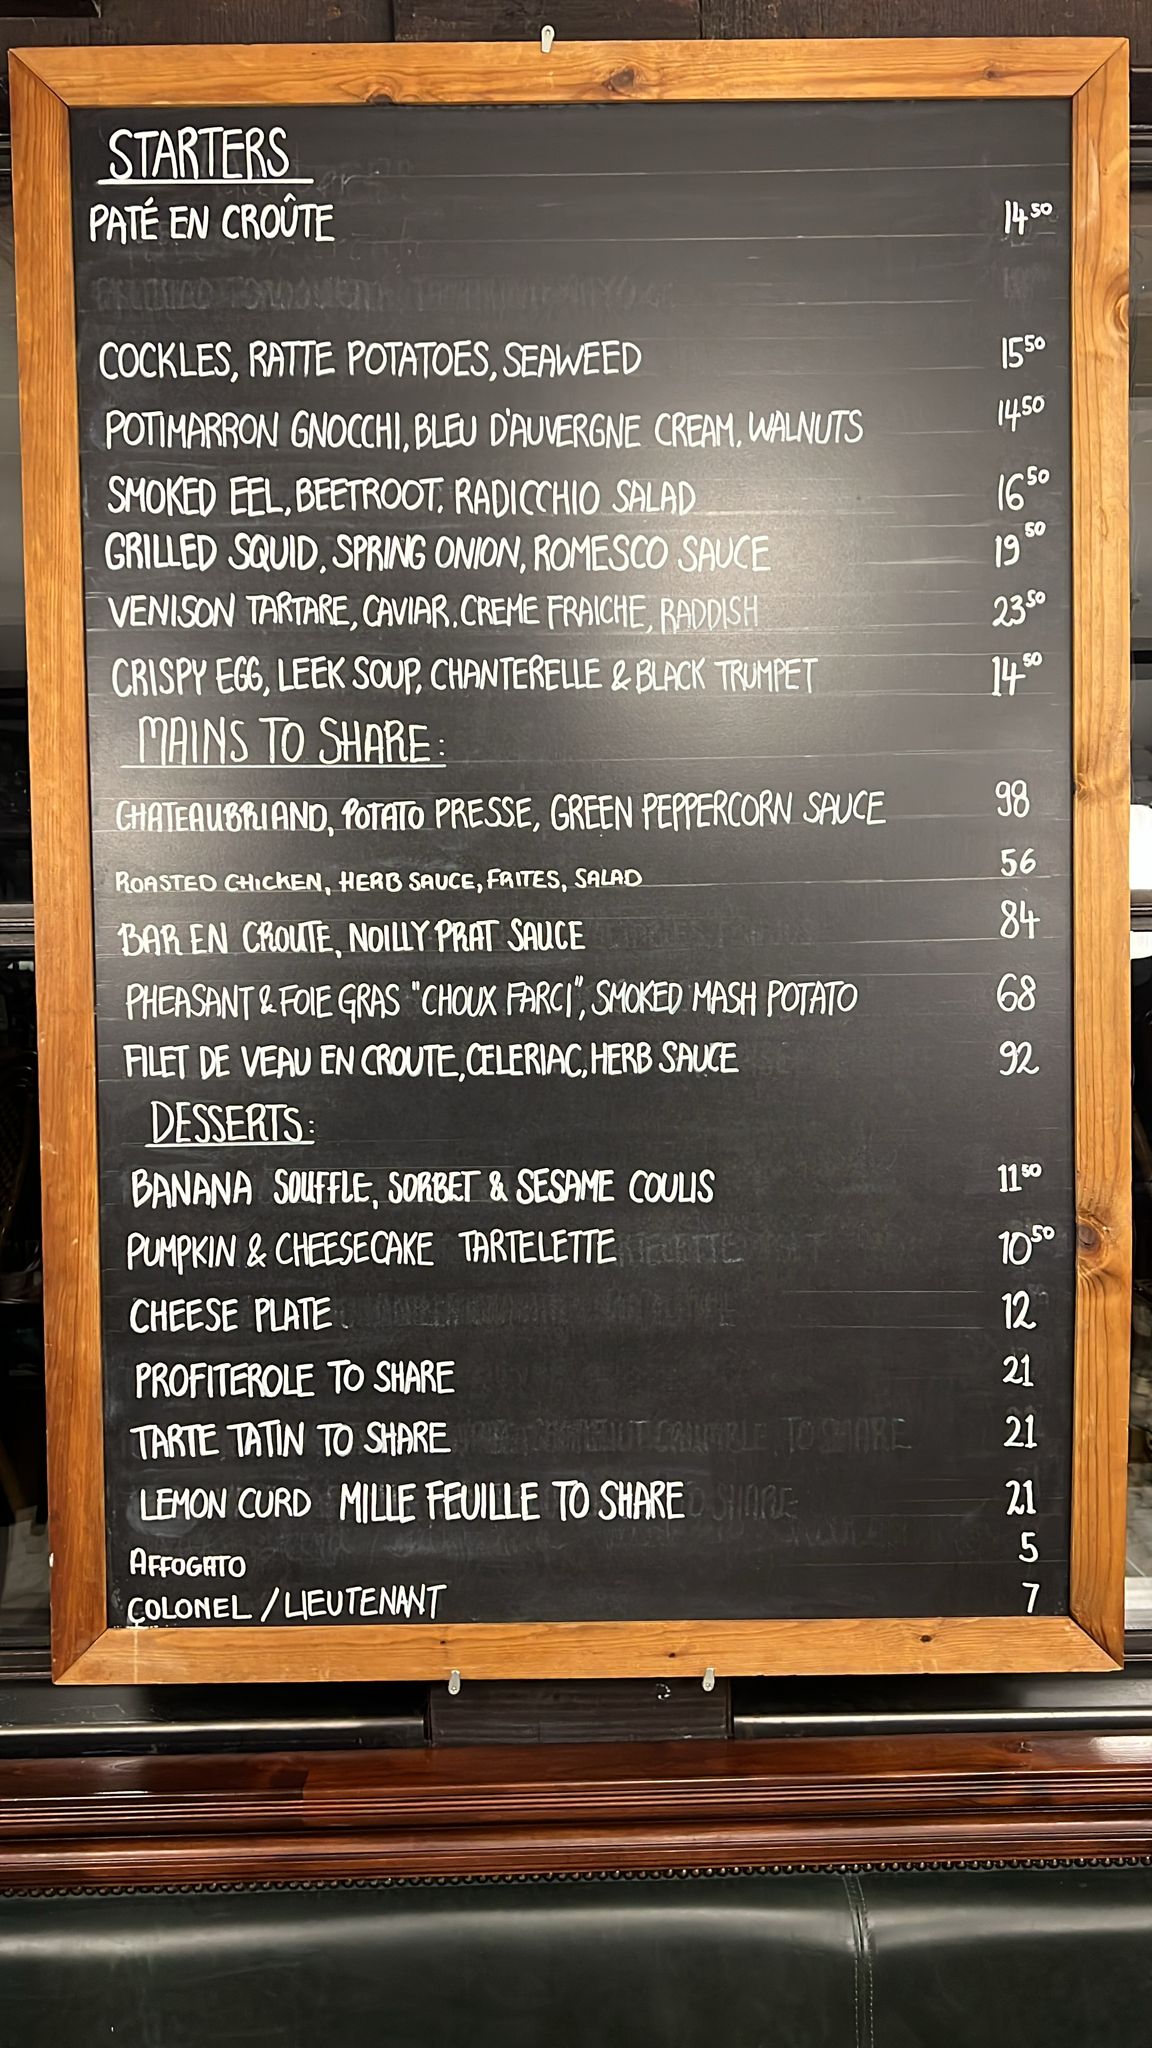 STARTERS
PATÉ EN CROÛTE 14 50
COCKLES, RATTE POTATOES, SEAWEED 15 50
POTIMARRON GNOCCHI, BLEU D'AUVERGNE CREAM, WALNUTS 14 50
SMOKED EEL, BEETROOT, RADICCHIO SALAD 16 50
GRILLED SQUID, SPRING ONION, ROMESCO SAUCE 19 50
VENISON TARTARE, CAVIAR, CREME FRAICHE, RADDISH 23 50
CRISPY EGG, LEEK SOUP, CHANTERELLE & BLACK TRUMPET 14 50
MAINS TO SHARE:
CHATEAUBRIAND, POTATO PRESSE, GREEN PEPPERCORN SAUCE 98
ROASTED CHICKEN, HERB SAUCE, FRITES, SALAD 56
BAR EN CROUTE, NOILLY PRAT SAUCE 84
PHEASANT & FOIE GRAS "CHOUX FARCI", SMOKED MASH POTATO 68
FILET DE VEAU EN CROUTE, CELERIAC, HERB SAUCE 92
DESSERTS:
BANANA SOUFFLE, SORBET & SESAME COULIS 11 50
PUMPKIN & CHEESECAKE TARTELETTE 10 50
CHEESE PLATE 12
PROFITEROLE TO SHARE 21
TARTE TATIN TO SHARE 21
LEMON CURD MILLE FEUILLE TO SHARE 21
AFFOGATO 5
COLONEL / LIEUTENANT 7